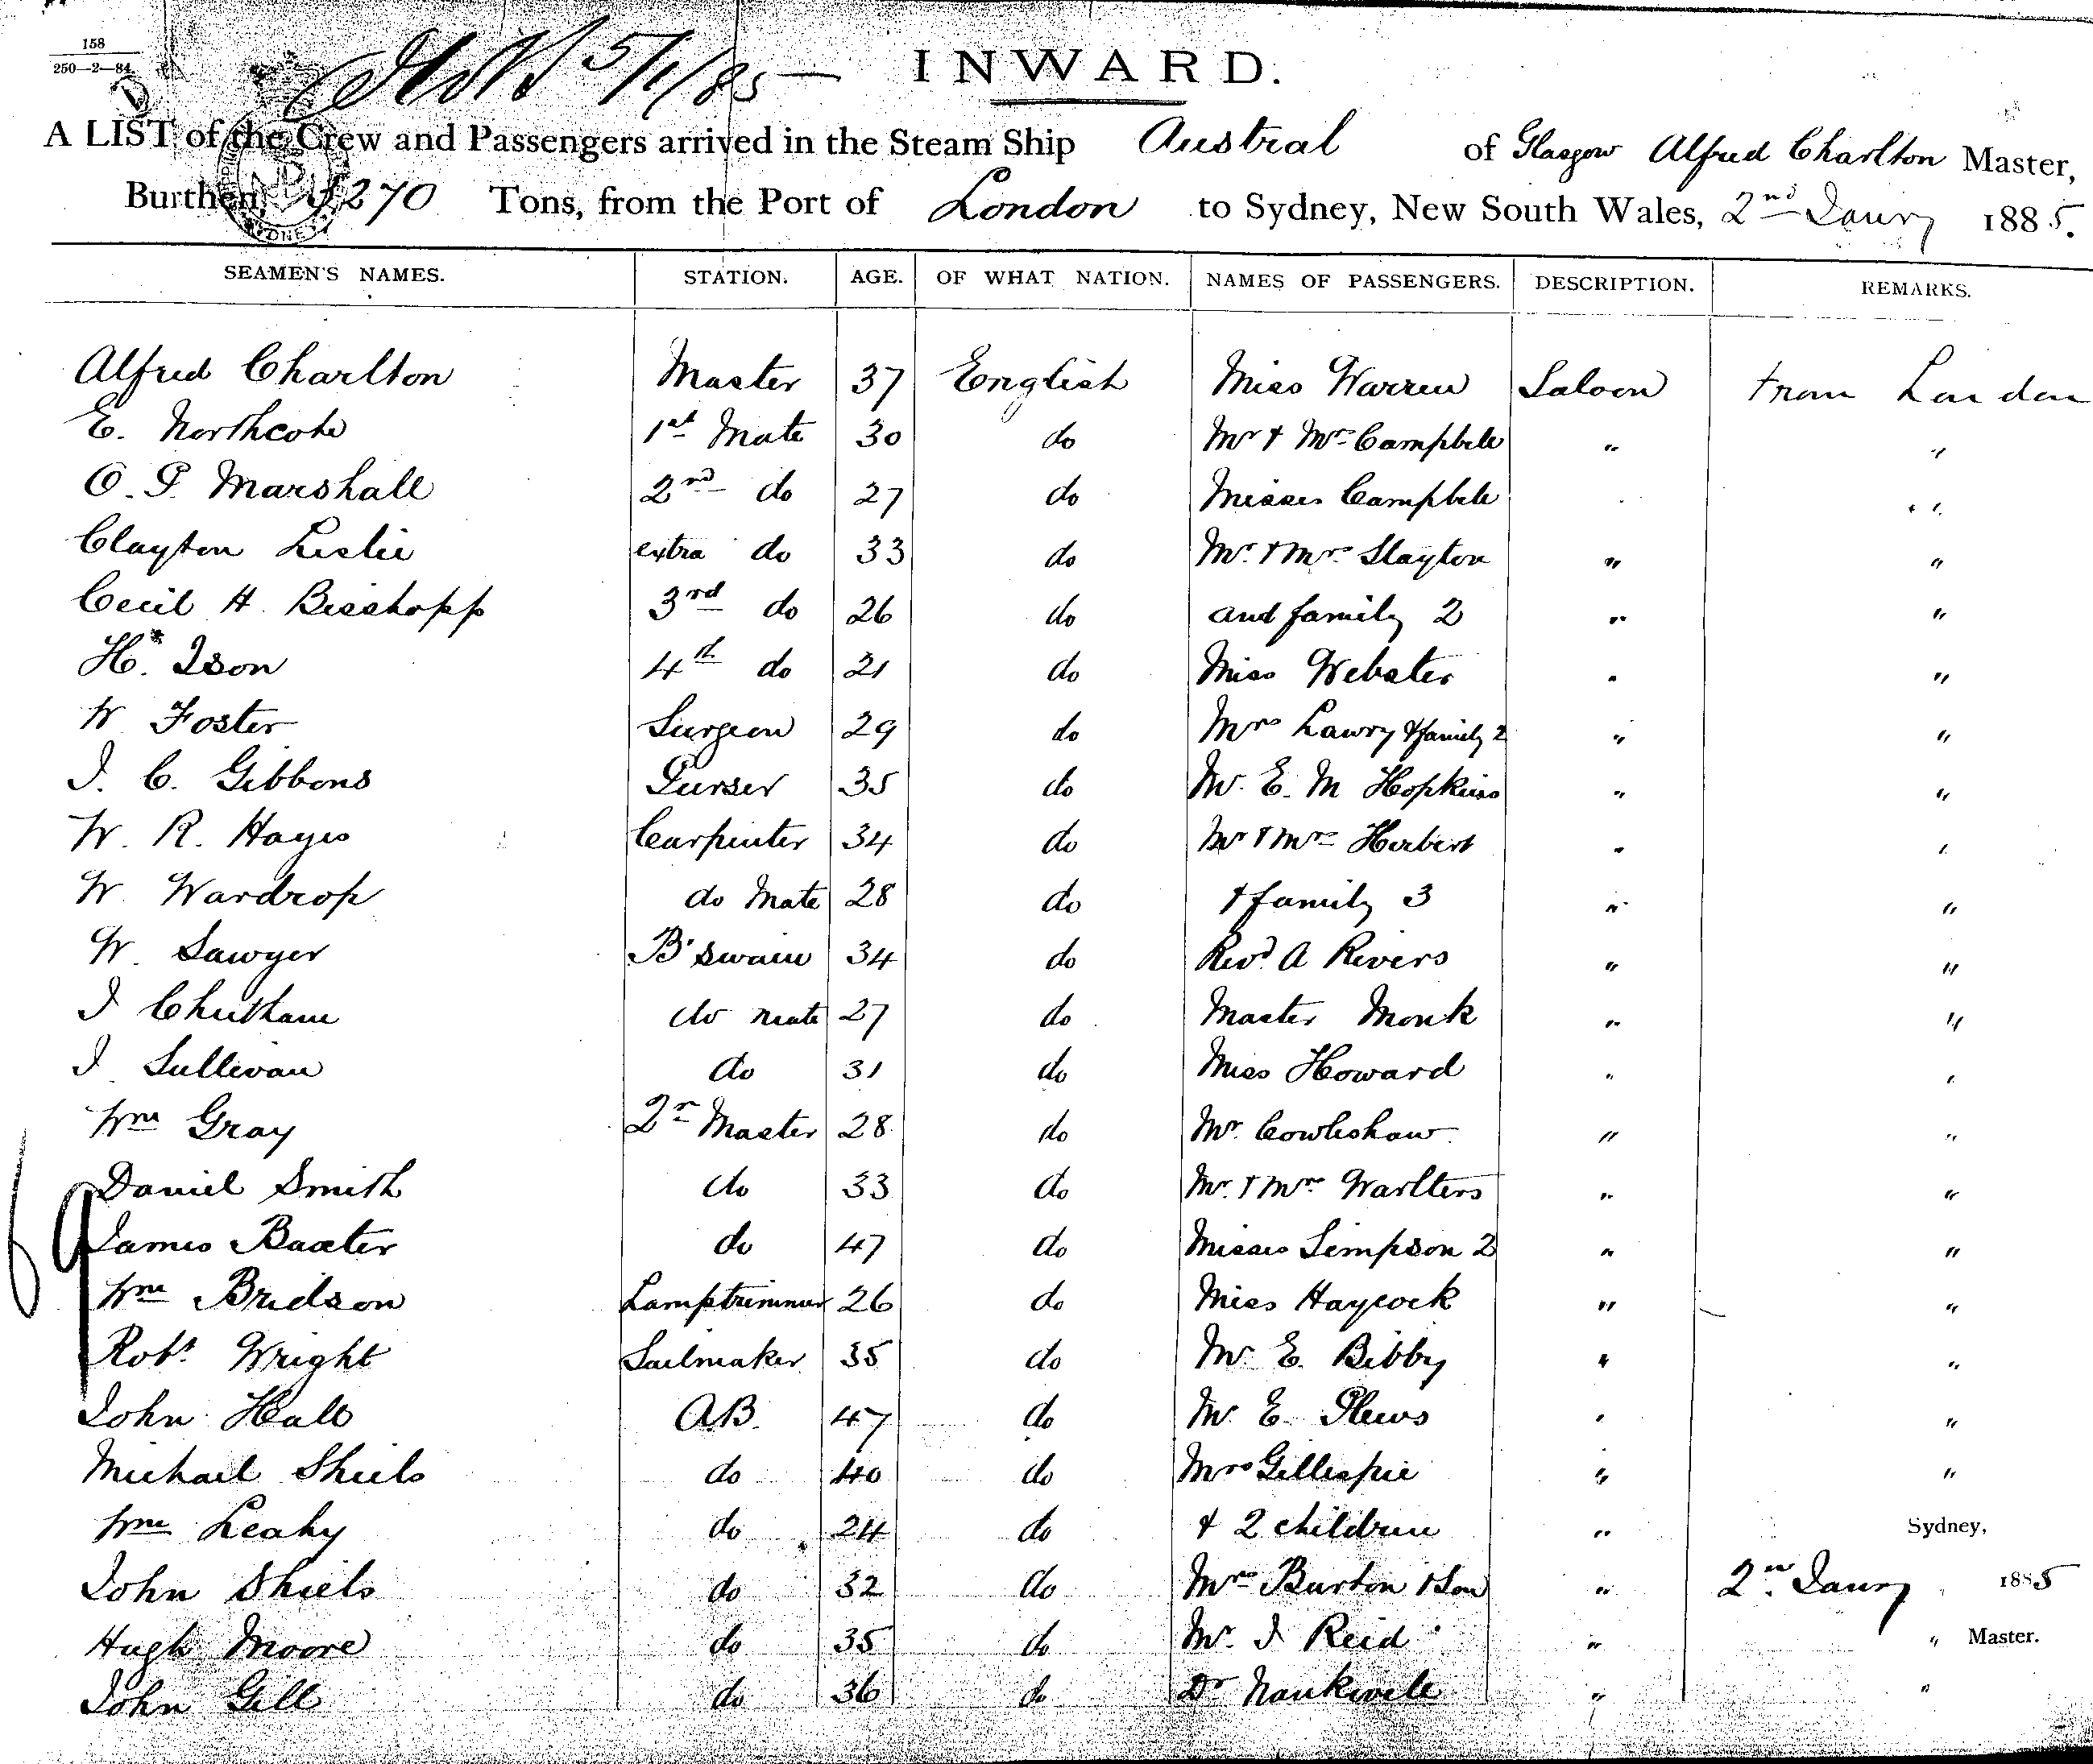 158
250—2—84
5/1/85 — INWARD.
A LIST of the Crew and Passengers arrived in the Steam Ship Austral of Glasgow Alfred Charlton Master,
Burthen, 3270 Tons, from the Port of London to Sydney, New South Wales, 2nd Jany 1885.
SEAMEN'S NAMES. STATION. AGE. OF WHAT NATION. NAMES OF PASSENGERS. DESCRIPTION. REMARKS.
Alfred Charlton Master 37 English Miss Warren Saloon From London
E. Northcote 1st Mate 30 do Mr & Mrs Campbell " "
O. P. Marshall 2nd do 27 do Misses Campbell "
Clayton Leslie extra do 33 do Mr. & Mrs Slayton " "
Cecil H. Bisshopp 3rd do 26 do and family 2 " "
H. Ison 4th do 21 do Miss Webster " "
W Foster Surgeon 29 do Mrs Lawry & family 2 " "
J. C. Gibbons Purser 35 do Mr. E. M Hopkins " "
W. R. Hayes Carpenter 34 do Mr & Mrs Herbert " "
W. Wardrop do Mate 28 do & family 3 " "
W. Sawyer B'swain 34 do Revd. A Rivers " "
J Cheetham do mate 27 do Master Monk " "
J Sullivan do 31 do Miss Howard " "
Wm Gray 2r Master 28 do Mr. Cowlishaw " "
Daniel Smith do 33 do Mr. & Mrs Warlters " "
James Baxter do 47 do Misses Simpson 2 " "
Wm Bridson Lamptrimmer 26 do Miss Haycock " "
Robt. Wright Sailmaker 35 do Mr. E. Bibby " "
John Hall AB. 47 do Mr. E. Plews " "
Michael Shiels do 40 do Mrs Gillespie " "
Wm Leahy do 24 do & 2 children " Sydney,
John Shiels do 32 do Mrs Burton & Son " 2nd Jany 1885
Hugh Moore do 35 do Mr. J Reid " " Master.
John Gill do 36 do Dr Nankivell " "